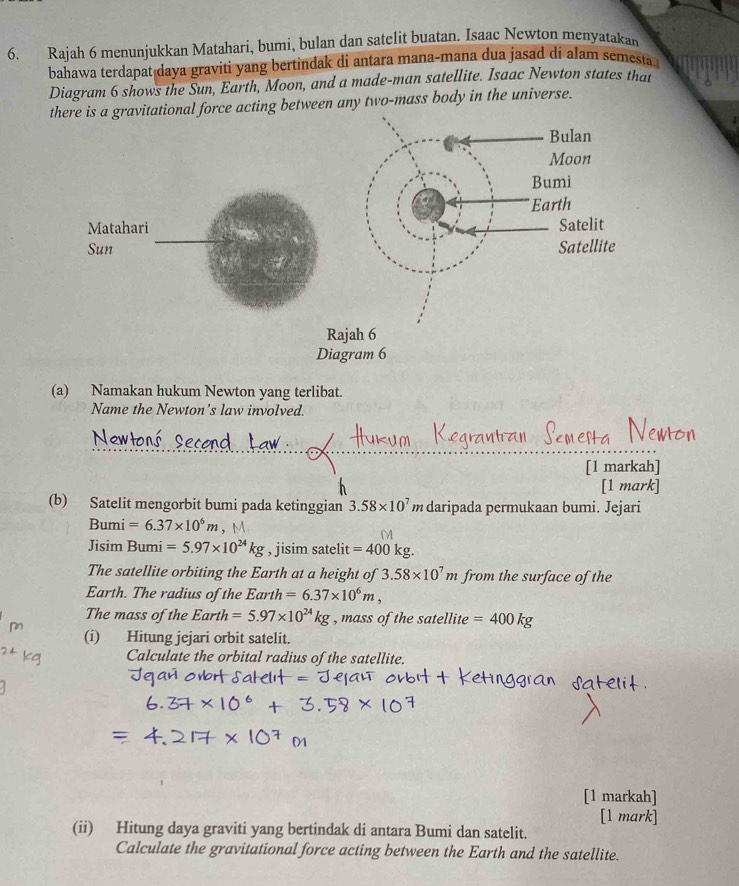 6. Rajah 6 menunjukkan Matahari, bumi, bulan dan satelit buatan. Isaac Newton menyatakan
bahawa terdapat daya graviti yang bertindak di antara mana-mana dua jasad di alam semesta.
Diagram 6 shows the Sun, Earth, Moon, and a made-man satellite. Isaac Newton states that
there is a gravitational force acting between any two-mass body in the universe.
Bulan
Moon
Bumi
Earth
Matahari
Sun
Satelit
Satellite
Rajah 6
Diagram 6
(a) Namakan hukum Newton yang terlibat.
Name the Newton's law involved.
Newton's second Law. Hukum Kegrantran Semesta Newton
[1 markah]
[1 mark]
h
(b) Satelit mengorbit bumi pada ketinggian 3.58×10⁷ m daripada permukaan bumi. Jejari
Bumi = 6.37×10⁶ m , M
M
Jisim Bumi = 5.97×10²⁴ kg , jisim satelit = 400 kg.
The satellite orbiting the Earth at a height of 3.58×10⁷ m from the surface of the
Earth. The radius of the Earth = 6.37×10⁶ m ,
The mass of the Earth = 5.97×10²⁴ kg , mass of the satellite = 400 kg
m
(i) Hitung jejari orbit satelit.
24 kg
Calculate the orbital radius of the satellite.
Jejari orbit satelit = Jejari orbit + ketinggian satelit.
6.37 × 10⁶ + 3.58 × 10⁷
= 4.217 × 10⁷ m
[1 markah]
[1 mark]
(ii) Hitung daya graviti yang bertindak di antara Bumi dan satelit.
Calculate the gravitational force acting between the Earth and the satellite.